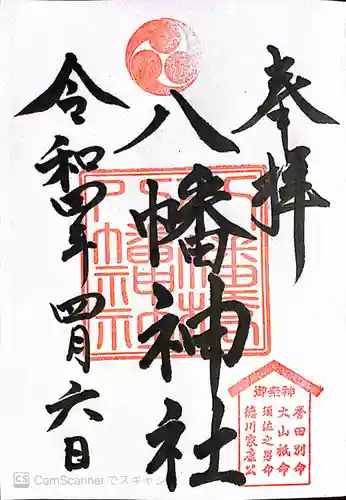 奉拝
八幡神社
令和四年四月六日
御祭神
誉田別命
大山祇命
須佐之男命
徳川家康公
CS CamScanner でスキャン